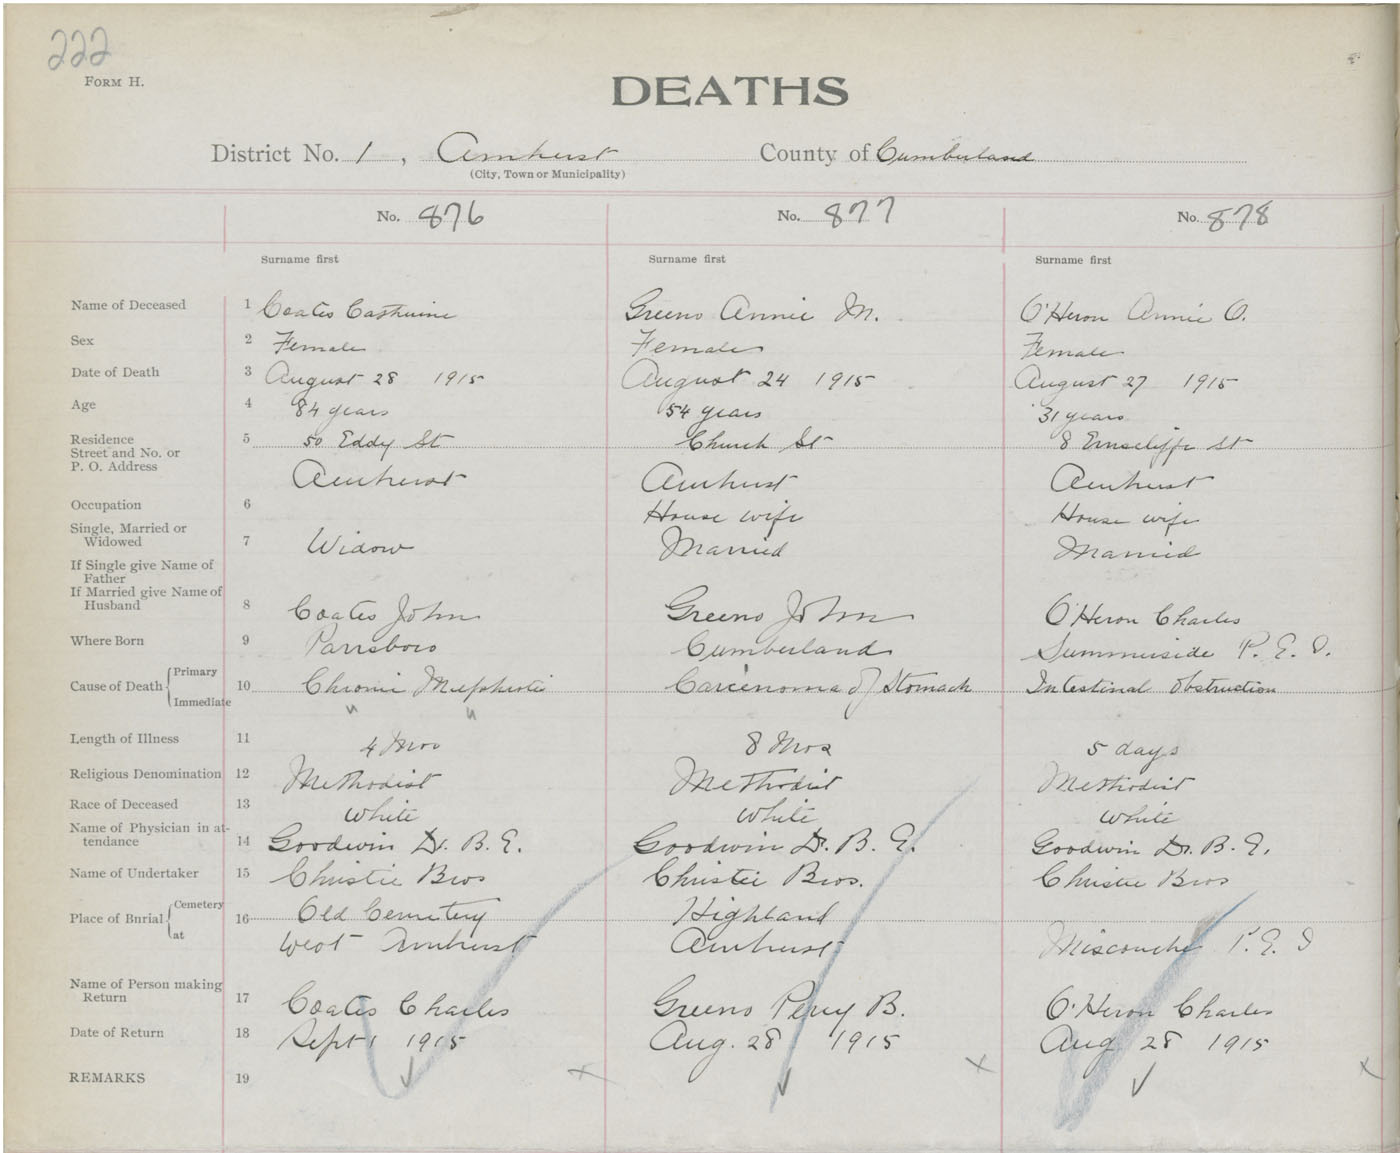 222
FORM H.
DEATHS
District No. 1, Amherst County of Cumberland
(City, Town or Municipality)
No. 876 No. 877 No. 878
Surname first Surname first Surname first
Name of Deceased 1 Coates Catherine Greeno Annie M. O'Heron Annie O.
Sex 2 Female Female Female
Date of Death 3 August 28 1915 August 24 1915 August 27 1915
Age 4 84 years 54 years 31 years
Residence 5 50 Eddy St Church St 8 St
Street and No. or
P. O. Address
Amherst Amherst Amherst
Occupation 6 House wife House wife
Single, Married or
Widowed 7 Widow Married Married
If Single give Name of
Father
If Married give Name of
Husband 8 Coates John Greeno John O'Heron Charles
Where Born 9 Parrsboro Cumberland Summerside P. E. I.
Cause of Death { Primary
Immediate 10 Chronic Nephritis Carcinoma of Stomach Intestinal Obstruction
n n
Length of Illness 11 4 Mos 8 Mos 5 days
Religious Denomination 12 Methodist Methodist Methodist
Race of Deceased 13 White White White
Name of Physician in at-
tendance 14 Goodwin Dr. B. E. Goodwin Dr. B. E. Goodwin Dr. B. E.
Name of Undertaker 15 Christie Bros Christie Bros. Christie Bros
Place of Burial { Cemetery
at 16 Old Cemetery Highland
West Amherst Amherst Miscouche P. E. I
Name of Person making
Return 17 Coates Charles Greeno Percy B. O'Heron Charles
Date of Return 18 Sept 1 1915 Aug. 28 1915 Aug 28 1915
REMARKS 19